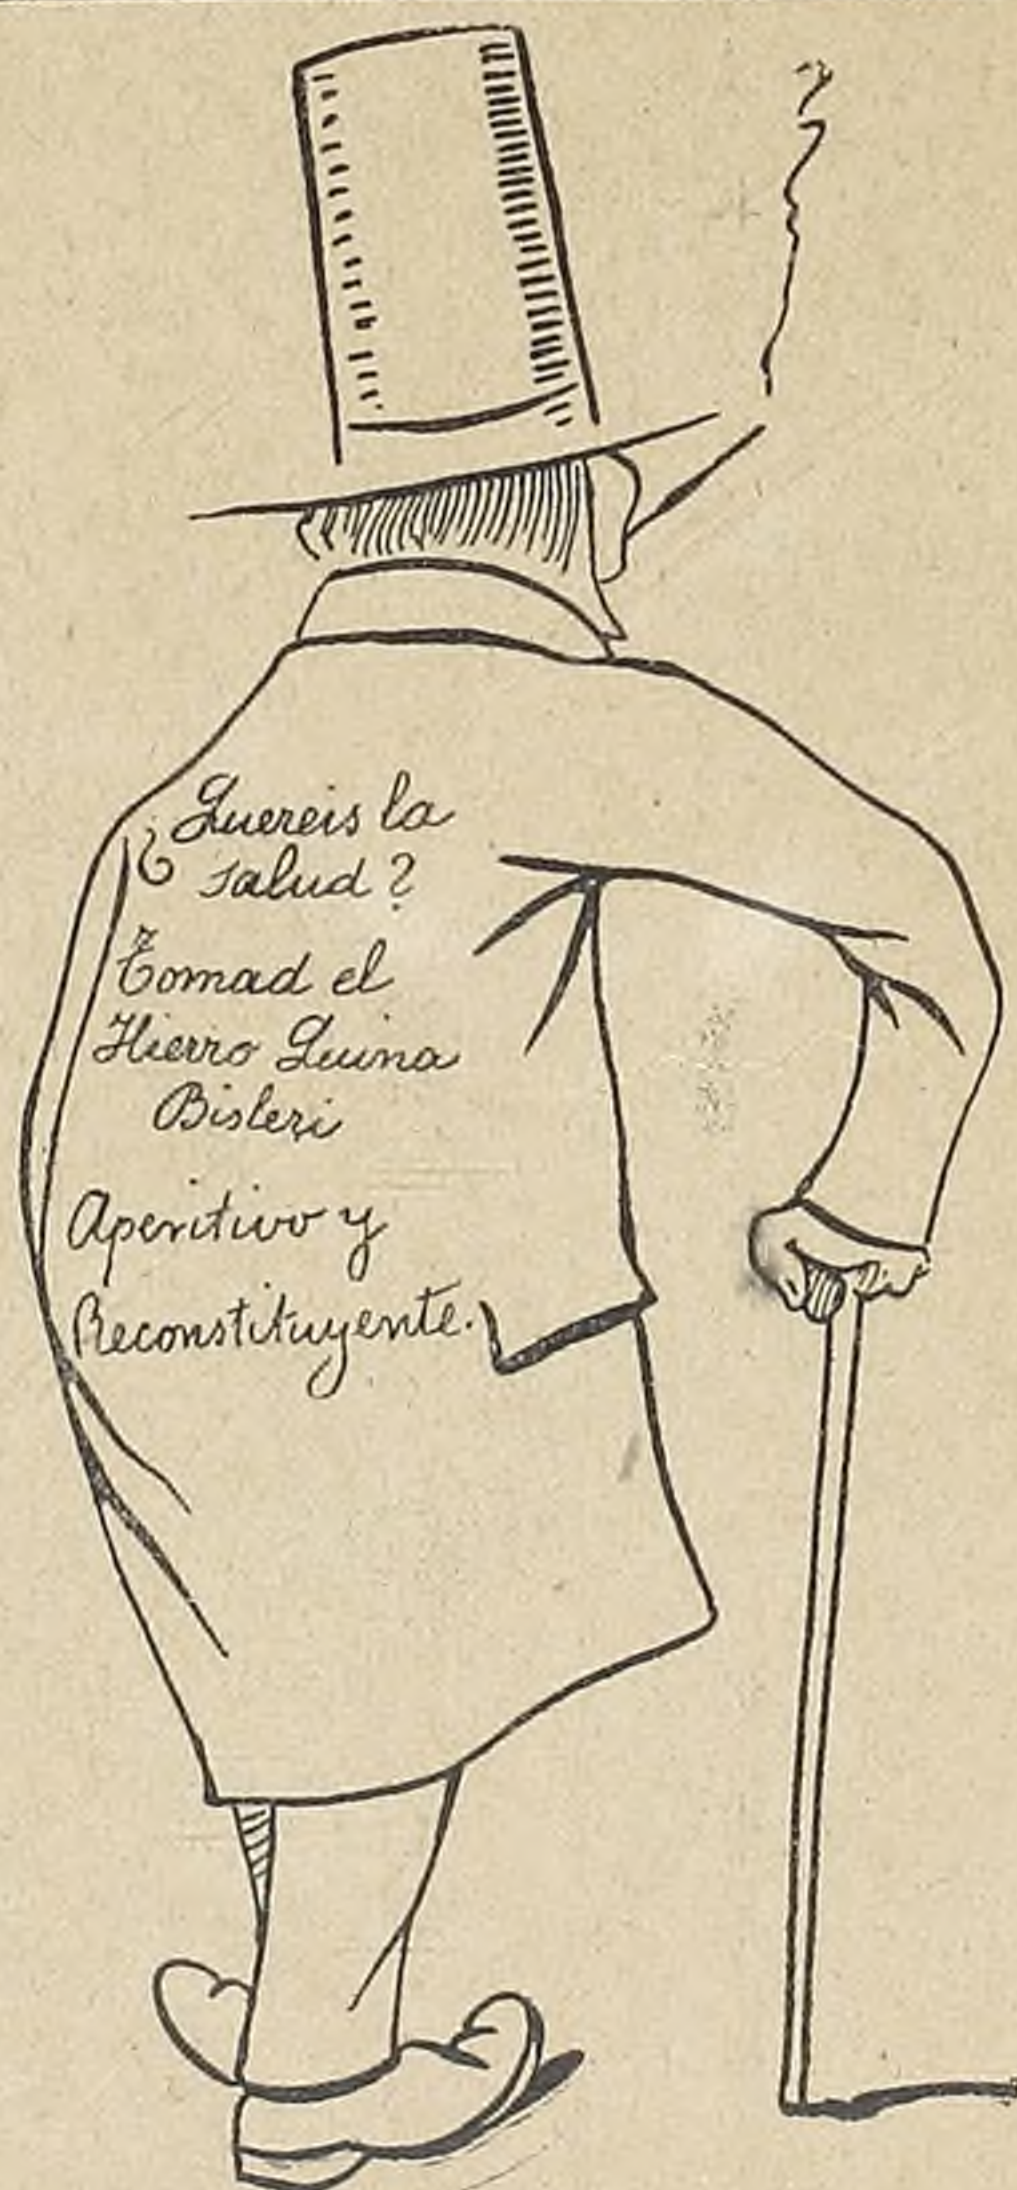 ¿Quereis la
salud?
Tomad el
Hierro Quina
Bisleri
Aperitivo y
Reconstituyente.